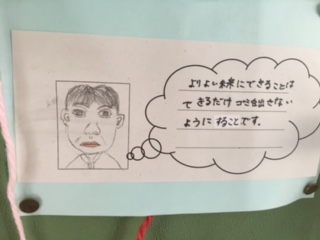 よりよい未来にできることは
できるだけゴミを出さない
ようにすることです。